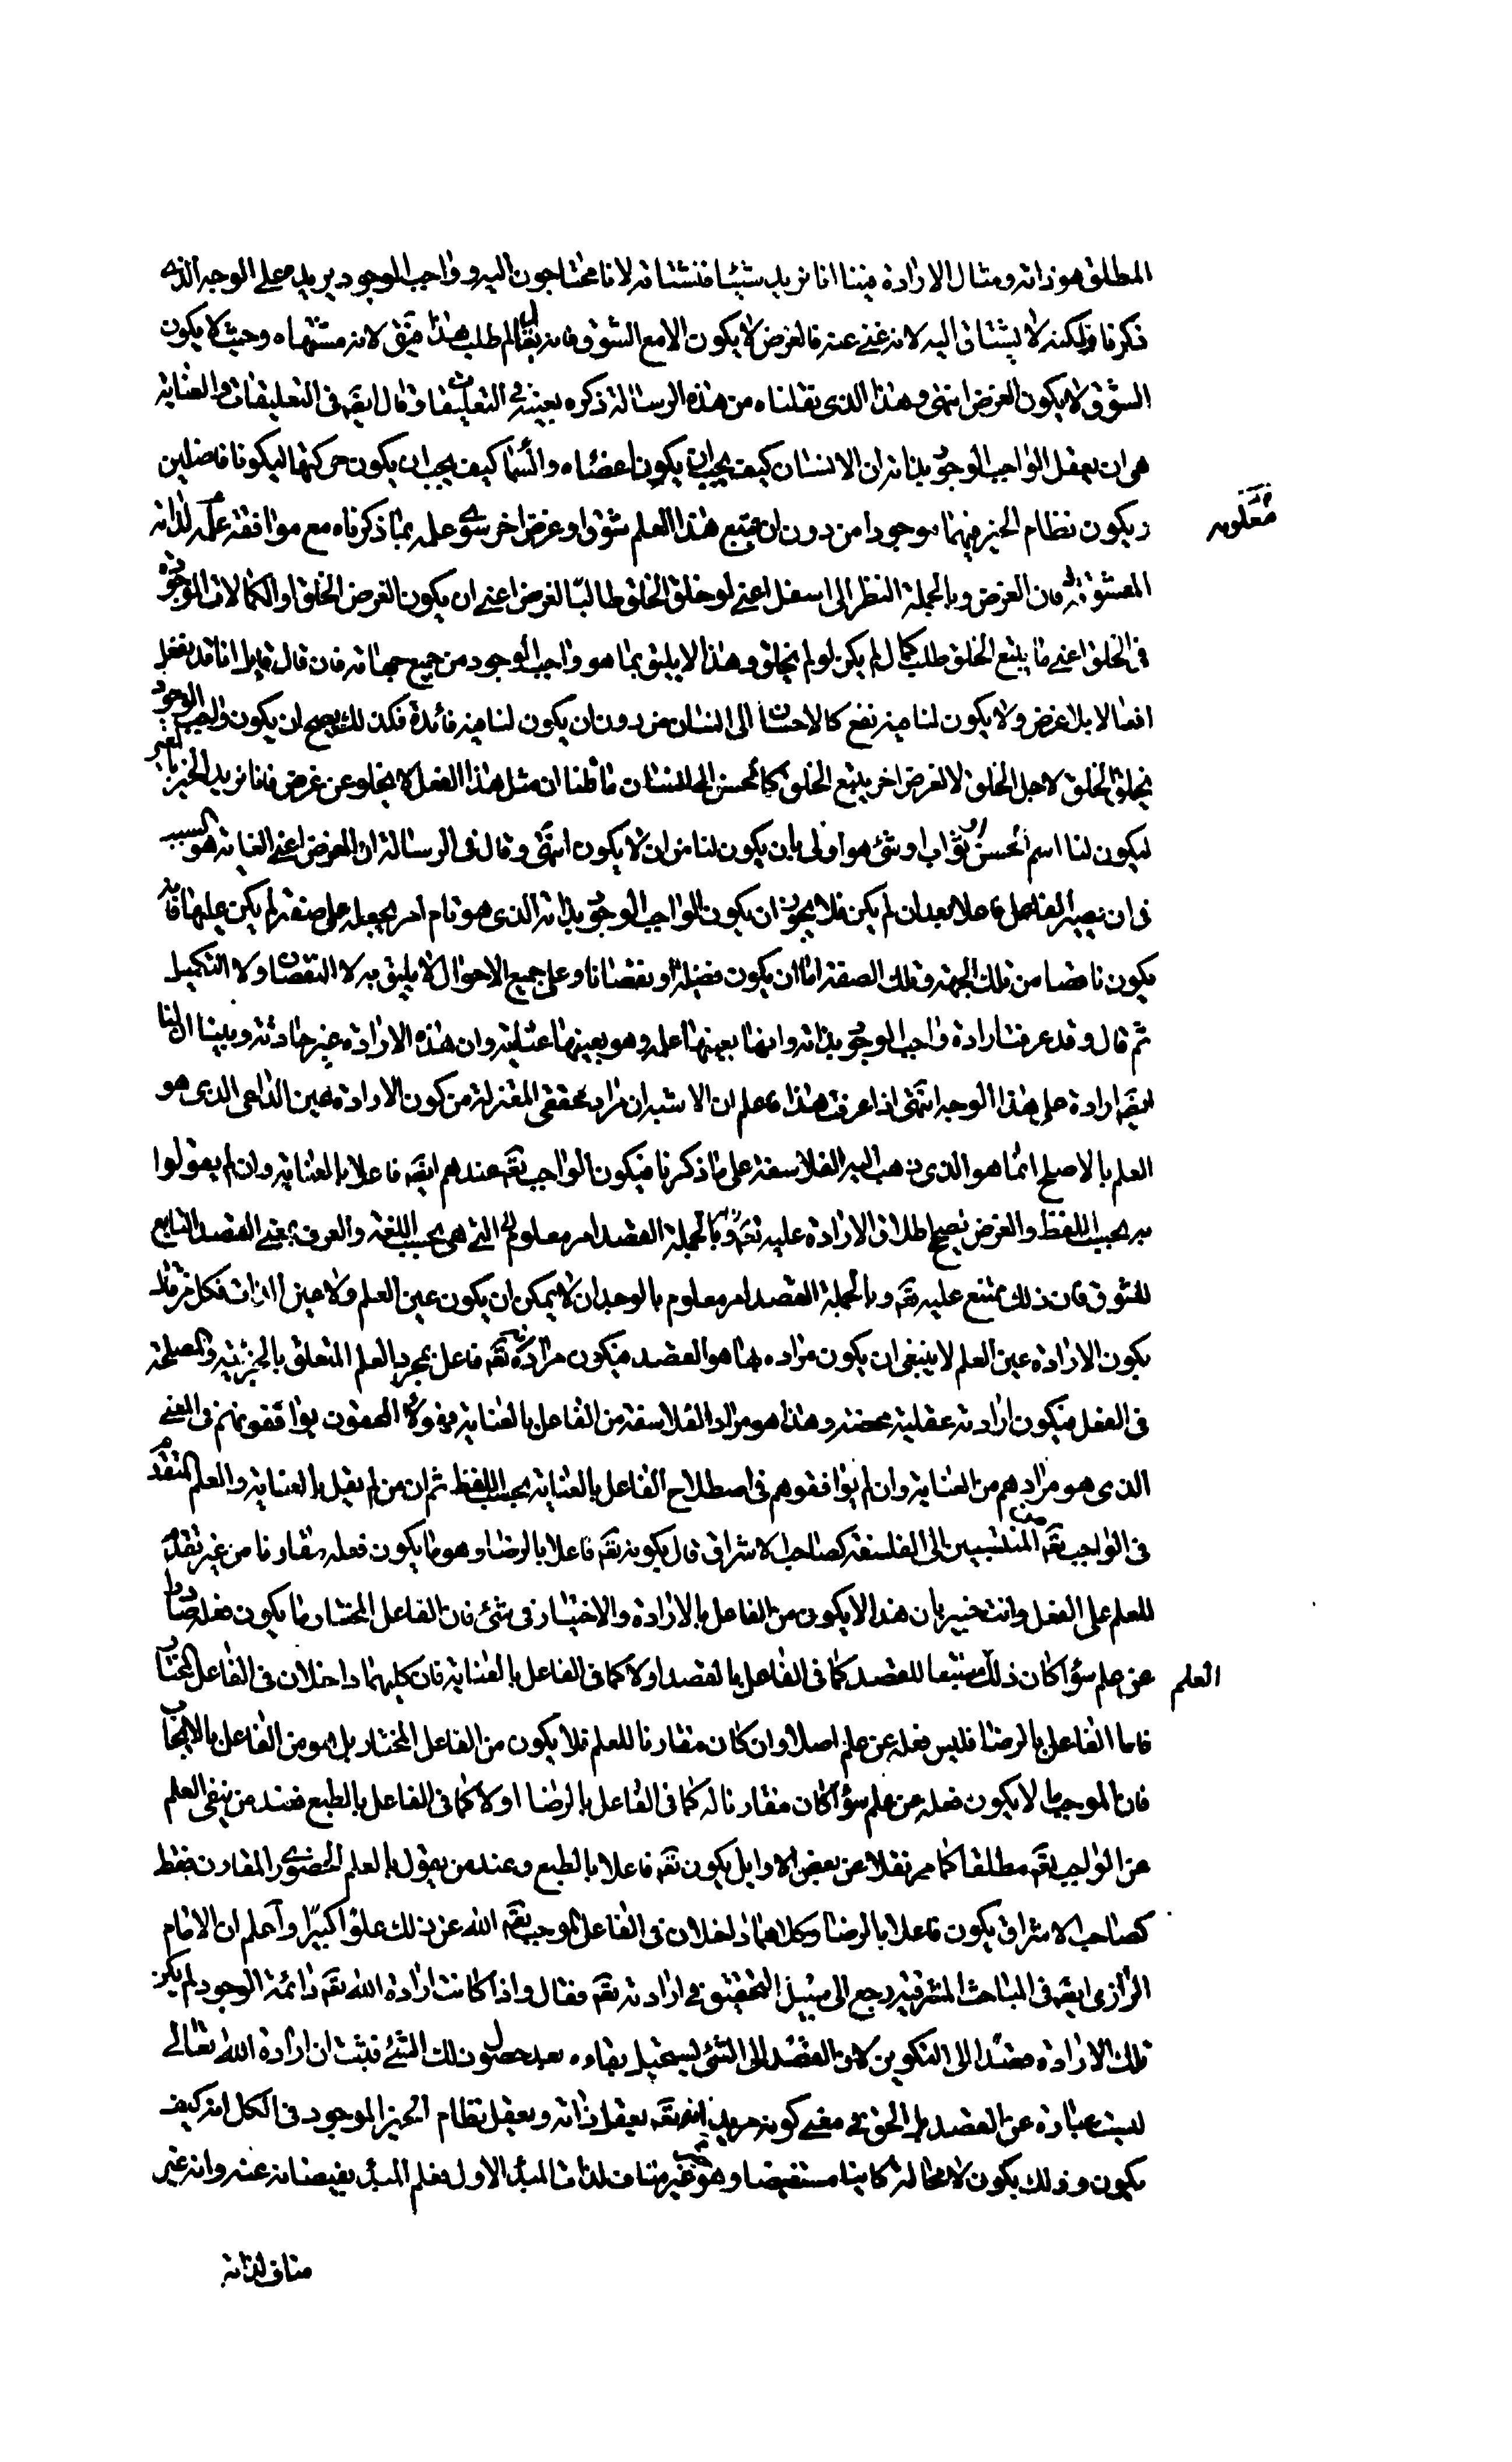 المطلق هو ذاته ومثال الارادة فينا انا نريد شيئا فنشتاقه لانا محتاجون اليه وواجب الوجود يريده على الوجه الذى
ذكرنا ولكنه لا يشتاق اليه لانه غنى عنه فالغرض لا يكون الا مع الشوق فانه يقال لم طلب هذا فيق لانه مشتهاه وحيث لا يكون
الشوق لا يكون الغرض انتهى وهذا الذى نقلناه من هذه الرسالة ذكره بعينه فى التعليقات وقال ايضه فى التعليقات العناية
هى ان يعقل الواجب الوجود بذاته ان الانسان كيف يجب ان يكون اعضاه والسما كيف يجب ان يكون حركتها ليكونا فاضلين
ويكون نظام الخير فيهما موجودا من دون ان يتبع هذا العلم شوق او غرض اخر سوى علمه بما ذكرناه مع موافقة علمه لذاته
المعشوقة له فان الغرض وبالجملة النظر الى اسفل اعنى لو خلق الخلق طالبا لغرض اعنى ان يكون الغرض الخلق او الكمالات الموجودة
فى الخلق اعنى ما يتبع الخلق طلب كمال لم يكن لو لم يخلق وهذا لا يليق بما هو واجب الوجود من جميع جهاته فان قال قايل انا قد نفعل
افعالا بلا غرض ولا يكون لنا فيه نفع كالاحسان الى انسان من دون ان يكون لنا فيه فائدة فكذلك يصح ان يكون واجب الوجود
يخلق الخلق لاجل الخلق لا لغرض اخر يتبع الخلق كما نحسن الى انسان قلنا ان مثل هذا الفعل لا يخلو عن غرض فانا نريد الخير بالغير
ليكون لنا اسم المحسن او ثواب او شئ هو اولى بان يكون لنا من ان لا يكون انتهى وقال فى الرسالة ان الغرض اعنى الغاية هو السبب
فى ان يصير الفاعل فاعلا بعد ان لم يكن فلا يجوز ان يكون الواجب الوجود بذاته الذى هو تام امر يجعله على صفة لم يكن عليها فانه
يكون ناقصا من تلك الجهة وتلك الصفة اما ان يكون فضيلة او نقصانا وعلى جميع الاحوال لا يليق به لا النقصان ولا التكميل
ثم قال وقد عرفت ارادة واجب الوجود بذاته وانها بعينها علمه وهو بعينها عناية وان هذه الارادة غير حادثة وبينا ان لنا
ايضه ارادة على هذا الوجه انتهى اذا عرفت هذا فاعلم ان الاشبه ان مراد محققى المعتزلة من كون الارادة عين الداعى الذى هو
العلم بالاصلح انما هو الذى ذهب اليه الفلاسفة على ما ذكرنا فيكون الواجب تعه عندهم ايضه فاعلا بالعناية وان لم يقولوا
به بحسب اللفظ والغرض تصحيح اطلاق الارادة عليه تعه وبالجملة القصد امر معلوم التى هى بحسب اللغة والعرف بمعنى القصد التابع
للشوق فان ذلك ممتنع عليه تعه وبالجملة القصد امر معلوم بالوجدان لا يمكن ان يكون عين العلم ولا عين الذات فكل من قال
بكون الارادة عين العلم لا ينبغى ان يكون مراده بها هو القصد فيكون مراده كونه تعه فاعل بمجرد العلم المتعلق بالخيرية والمصلحة
فى الفعل فيكون ارادته عقلية محضة وهذا هو مراد الفلاسفة من الفاعل بالعناية فهؤلاء المحققون يوافقونهم فى المعنى
الذى هو مرادهم من العناية وان لم يوافقوهم فى اصطلاح الفاعل بالعناية بحسب اللفظ ثم ان من لم يقل بالعناية والعلم المتقدم
فى الواجب تعه من المنتسبين الى الفلسفة كصاحب الاشراق قال بكونه تعه فاعلا بالرضا وهو ما يكون فعله مقارنا من غير تقدم
للعلم على الفعل وانت خبير بان هذا لا يكون من الفاعل بالارادة والاختيار فى شئ فان الفاعل المختار ما يكون فعله صادرا
عن علم سواء كان ذلك العلم مستتبعا للقصد كما فى الفاعل بالقصد اولا كما فى الفاعل بالعناية فان كليهما داخلان فى الفاعل المختار
فاما الفاعل بالرضا فليس فعله عن علم اصلا وان كان مقارنا للعلم فلا يكون من الفاعل المختار بل هو من الفاعل بالايجاب
فان الموجب ما لا يكون فعله عن علم سواء كان مقارنا له كما فى الفاعل بالرضا اولا كما فى الفاعل بالطبع فعند من ينفى العلم
عن الواجب تعه مطلقا كما مر نقلا عن بعض الاوايل يكون تعه فاعلا بالطبع وعند من يقول بالعلم الحضورى المقارن فقط
كصاحب الاشراق يكون فاعلا بالرضا وكلاهما داخلان فى الفاعل الموجب تعه الله عن ذلك علوا كبيرا واعلم ان الامام
الرازى ايضه فى المباحث المشرقية رجع الى سبيل التحقيق فى ارادته تعه فقال واذا كانت ارادة الله تعه دائمة الوجود لم يكن
تلك الارادة قصدا الى التكوين لان القصد الى الشئ يستحيل بقاءه بعد حصول ذلك الشئ فثبت ان ارادة الله تعالى
ليست عبارة عن القصد بل الحق فى معنى كونه مريدا انه تعه يعقل ذاته ويعقل نظام الخير الموجود فى الكل انه كيف
يكون وذلك يكون لا محالة كاينا مستفيضا وهو غير مناف لذات المبدا الاول فعلم المبدا بفيضانه عنه وانه غير
مناف لذاته